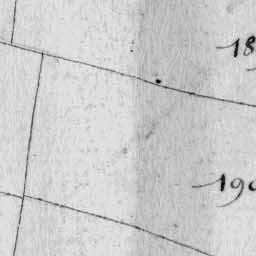 18
190